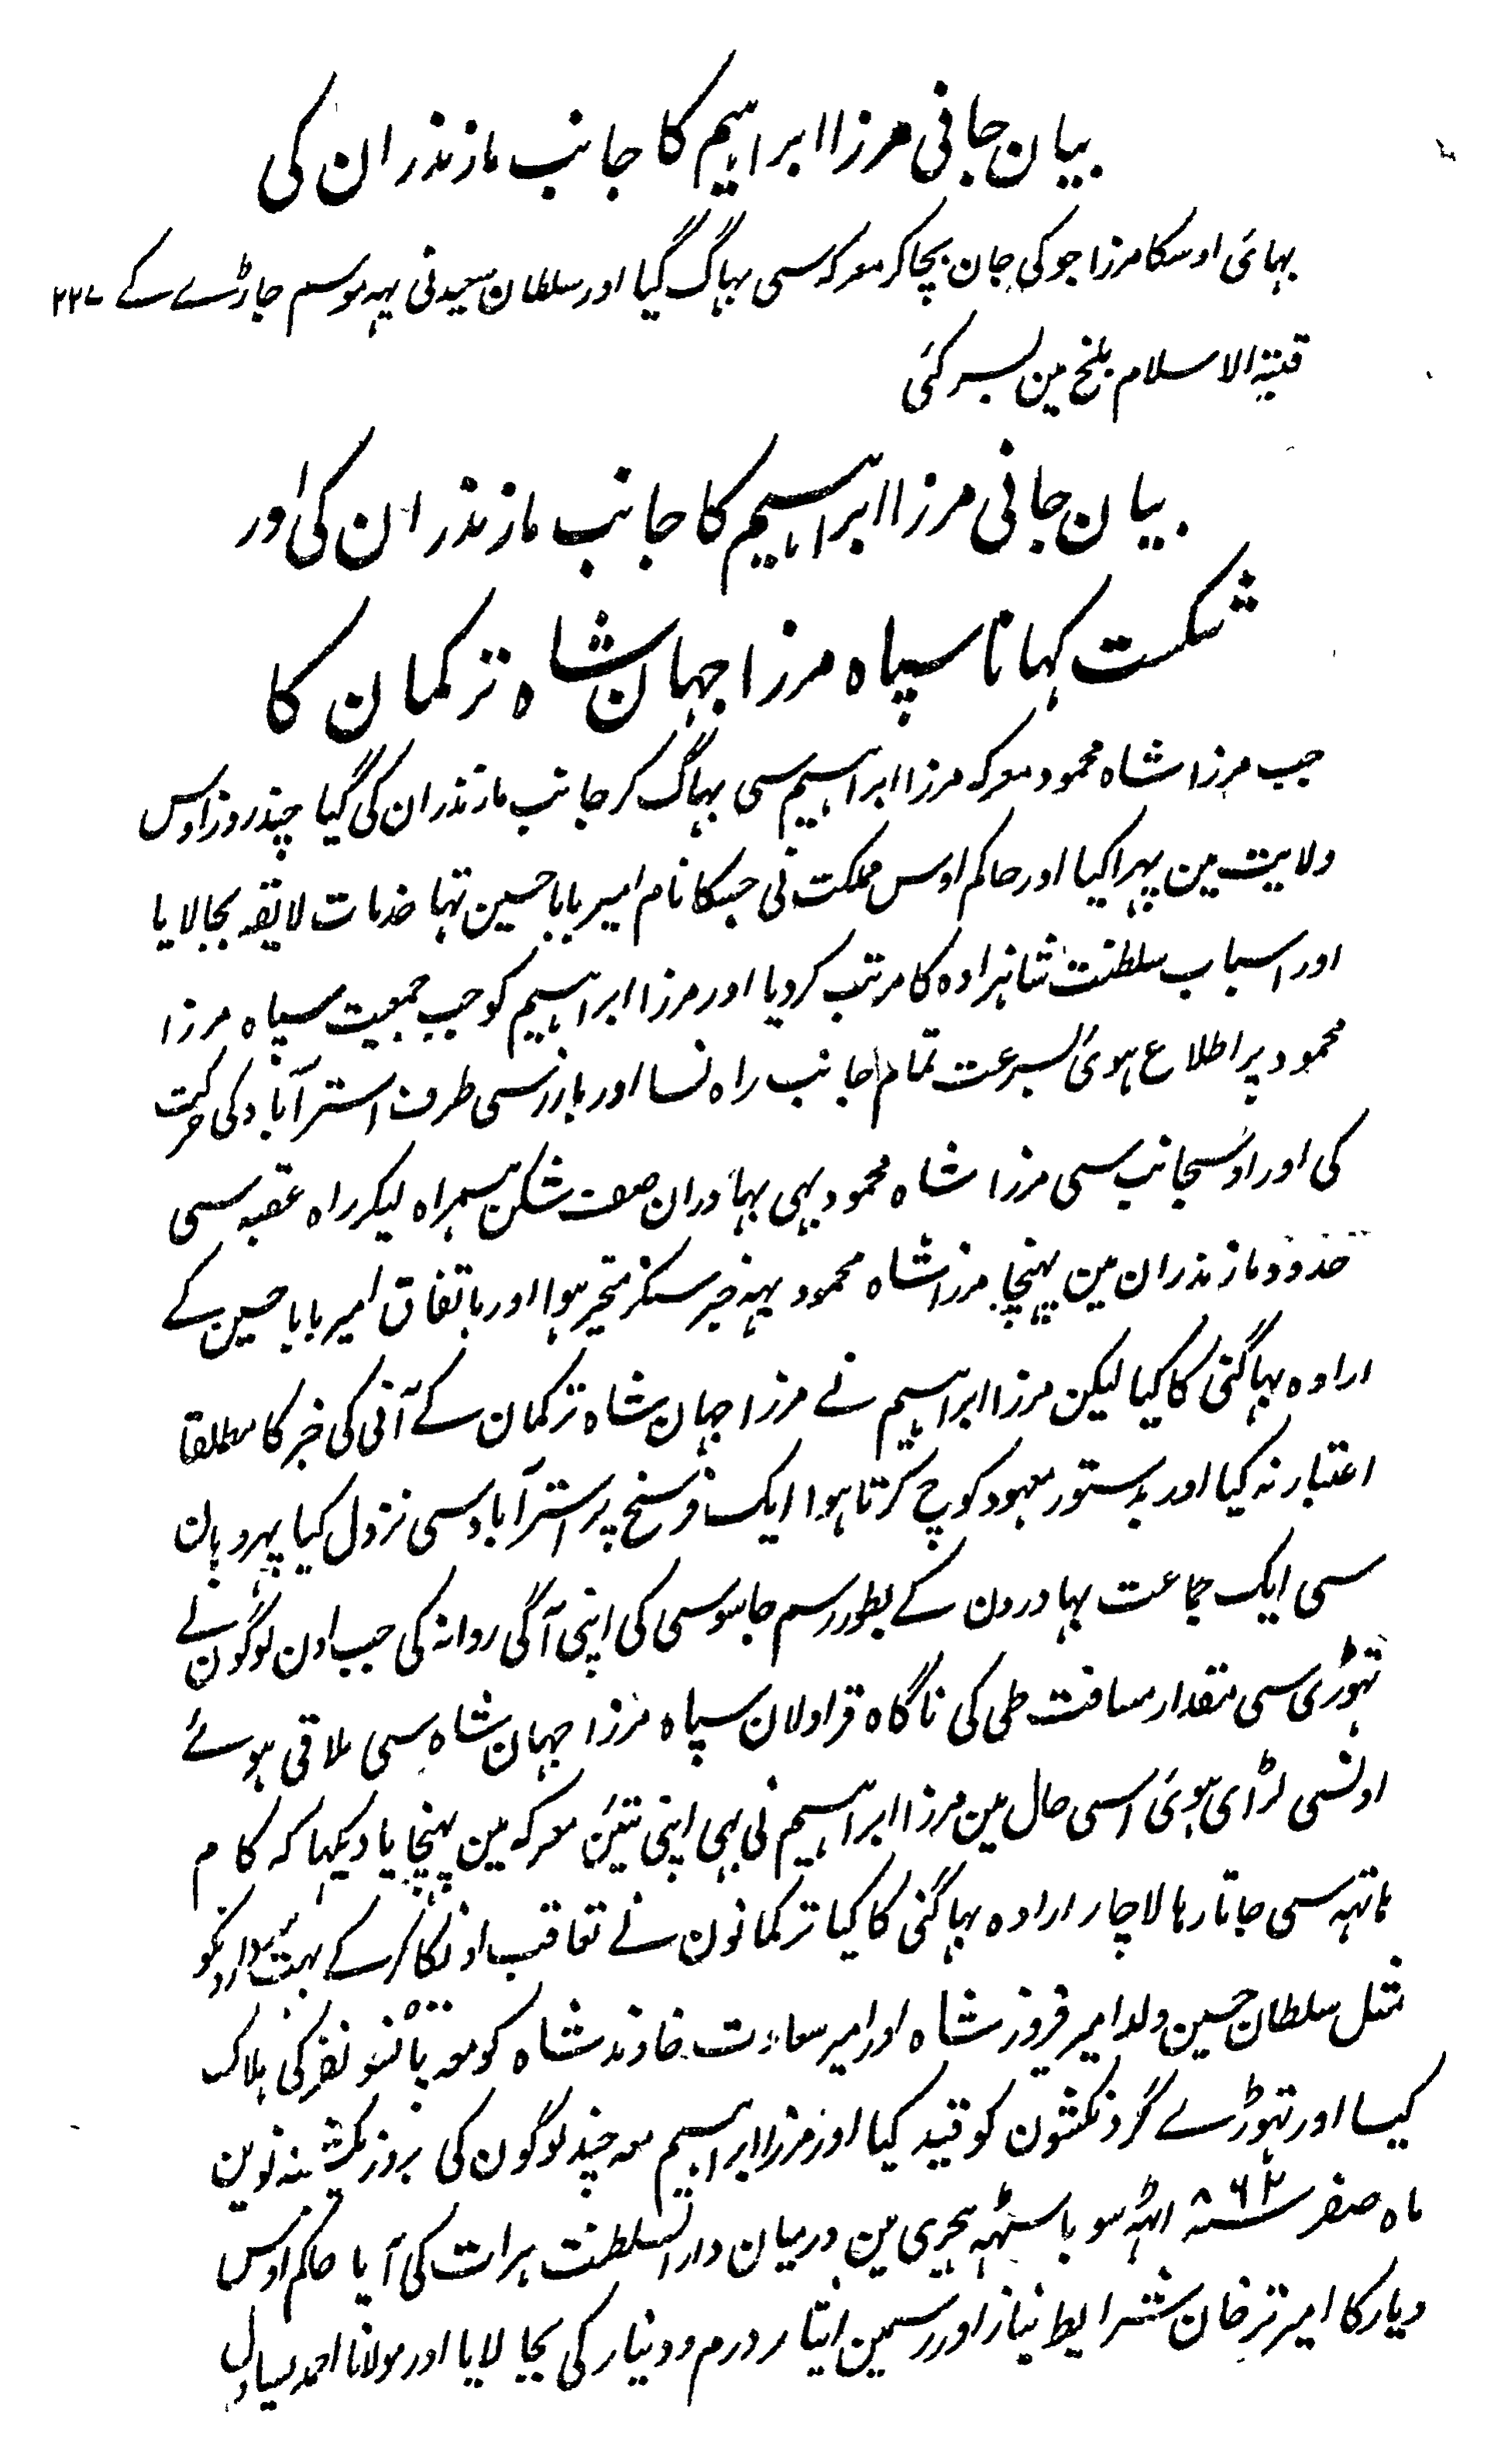 بیان جانی مرزا ابراہیم کا جانب مازندران کی
بہائی اوسکا مرزا جوکی جان بچاکر معرکہ سی بہاگ گیا اور سلطان سعید نی یہہ موسم جاڑے کے ۲۲۷
قبتہ الاسلام بلخ مین بسر کئی
بیان جانی مرزا ابراہیم کا جانب مازندران کی اور
شکست کہانا سپاہ مرزا جہان شاہ ترکمان کا
جب مرزا شاہ محمود معرکہ مرزا ابراہیم سی بہاگ کر جانب مازندران کی گیا چند روز اوس
ولایت مین پہرا کیا اور حاکم اوس مملکت نی جسکا نام امیر بابا حسین تہا خدمات لایقہ بجا لایا
اور اسباب سلطنت شاہزادہ کا مرتب کردیا اور مرزا ابراہیم کو جب جمعیت سپاہ مرزا
محمود پر اطلاع ہوئی بسرعت تمام جانب راہ نسا اور بازرسی طرف استرآباد کی حرکت
کی اور اوسجانب سی مرزا شاہ محمود بہی بہادران صف شکن ہمراہ لیکر راہ عقبہ سی
حدود مازندران مین پہنچا مرزا شاہ محمود یہہ خبر سنکر متحیر ہوا اور باتفاق امیر بابا حسین کے
ارادہ بہاگنی کا کیا لیکن مرزا ابراہیم نے مرزا جہان شاہ ترکمان کے آنی کی خبر کا مطلقا
اعتبار نہ کیا اور بدستور معہود کوچ کرتا ہوا ایک فرسخ پر استرآباد سی نزول کیا پہر وہان
سی ایک جماعت بہادرون کے بطور رسم جاسوسی کی اپنی آگی روانہ کی جب اون لوگون نے
تہوڑی سی مقدار مسافت طی کی ناگاہ قراولان سپاہ مرزا جہان شاہ سی ملاقی ہوئے
اونسی لڑای ہوئی اسی حال مین مرزا ابراہیم نی بہی اپنی تئین معرکہ مین پہنچایا دیکہا کہ کام
ہاتہہ سی جاتا رہا لاچار ارادہ بہاگنی کا کیا ترکمانون نے تعاقب اونکا کرکے بہت سردارونکو
مثل سلطان حسین ولد امیر فیروز شاہ اور امیر سعادت خاوند شاہ کو معہ پانسو نفر کی ہلاک
کیا اور تہوڑے گردنکشون کو قید کیا اور مرزا ابراہیم معہ چند لوگون کی بروز یکشنبہ نوین
ماہ صفر سنہ ۸۶۲ اٹہہ سو باسٹہہ ہجری مین درمیان دارالسلطنت ہرات کی آیا حاکم اوس
دیار کا امیر ترخان شرایط نیاز اور رسمین ایثار درم و دینار کی بجا لایا اور مولانا احمد یساول